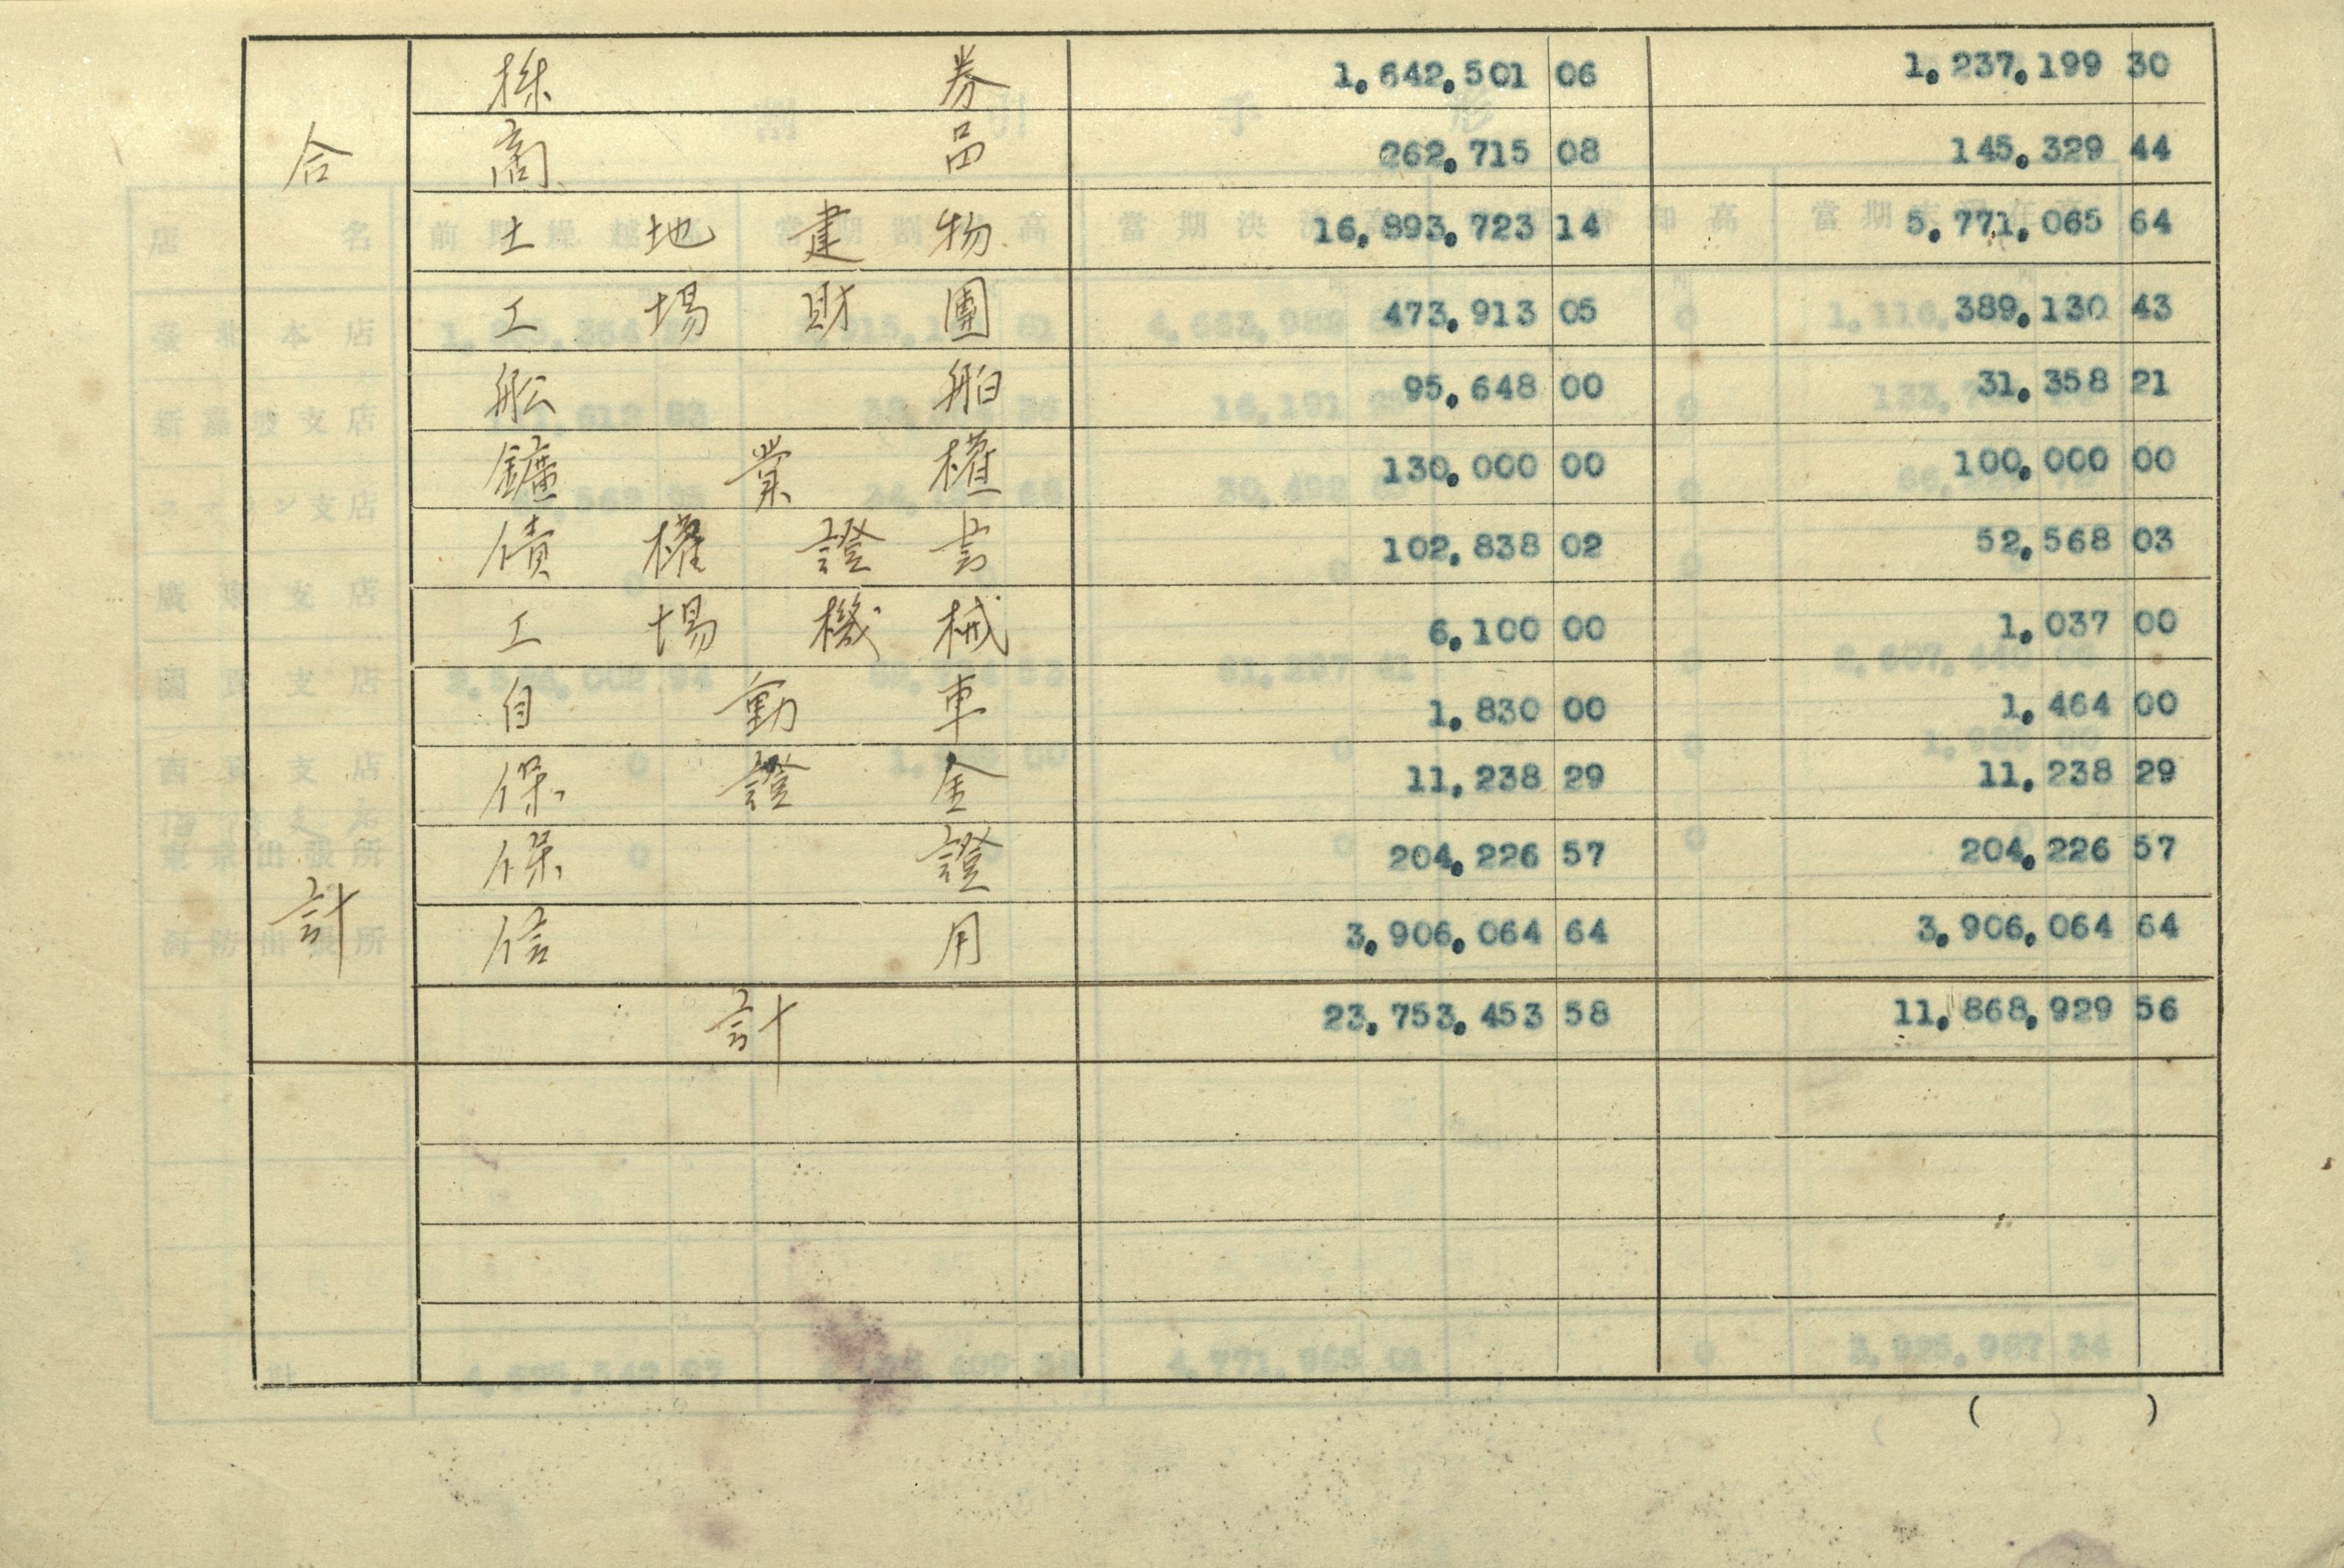 合計
株券 1,642,501 06 1,237,199 30
商品 262,715 08 145,329 44
土地建物 16,893,723 14 5,771,065 64
工場財團 473,913 05 389,130 43
船舶 95,648 00 31,358 21
鑛業權 130,000 00 100,000 00
債權證書 102,838 02 52,568 03
工場機械 6,100 00 1,037 00
自動車 1,830 00 1,464 00
保證金 11,238 29 11,238 29
保證 204,226 57 204,226 57
信用 3,906,064 64 3,906,064 64
計 23,753,453 58 11,868,929 56
( )